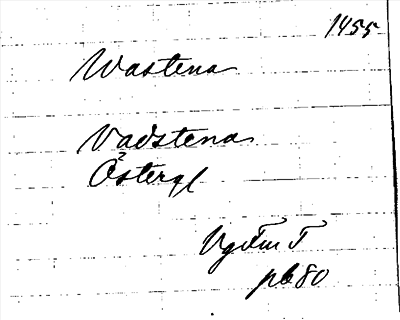 1455
Wastena
Vadstena
Östergl
VgFmT
pb 80